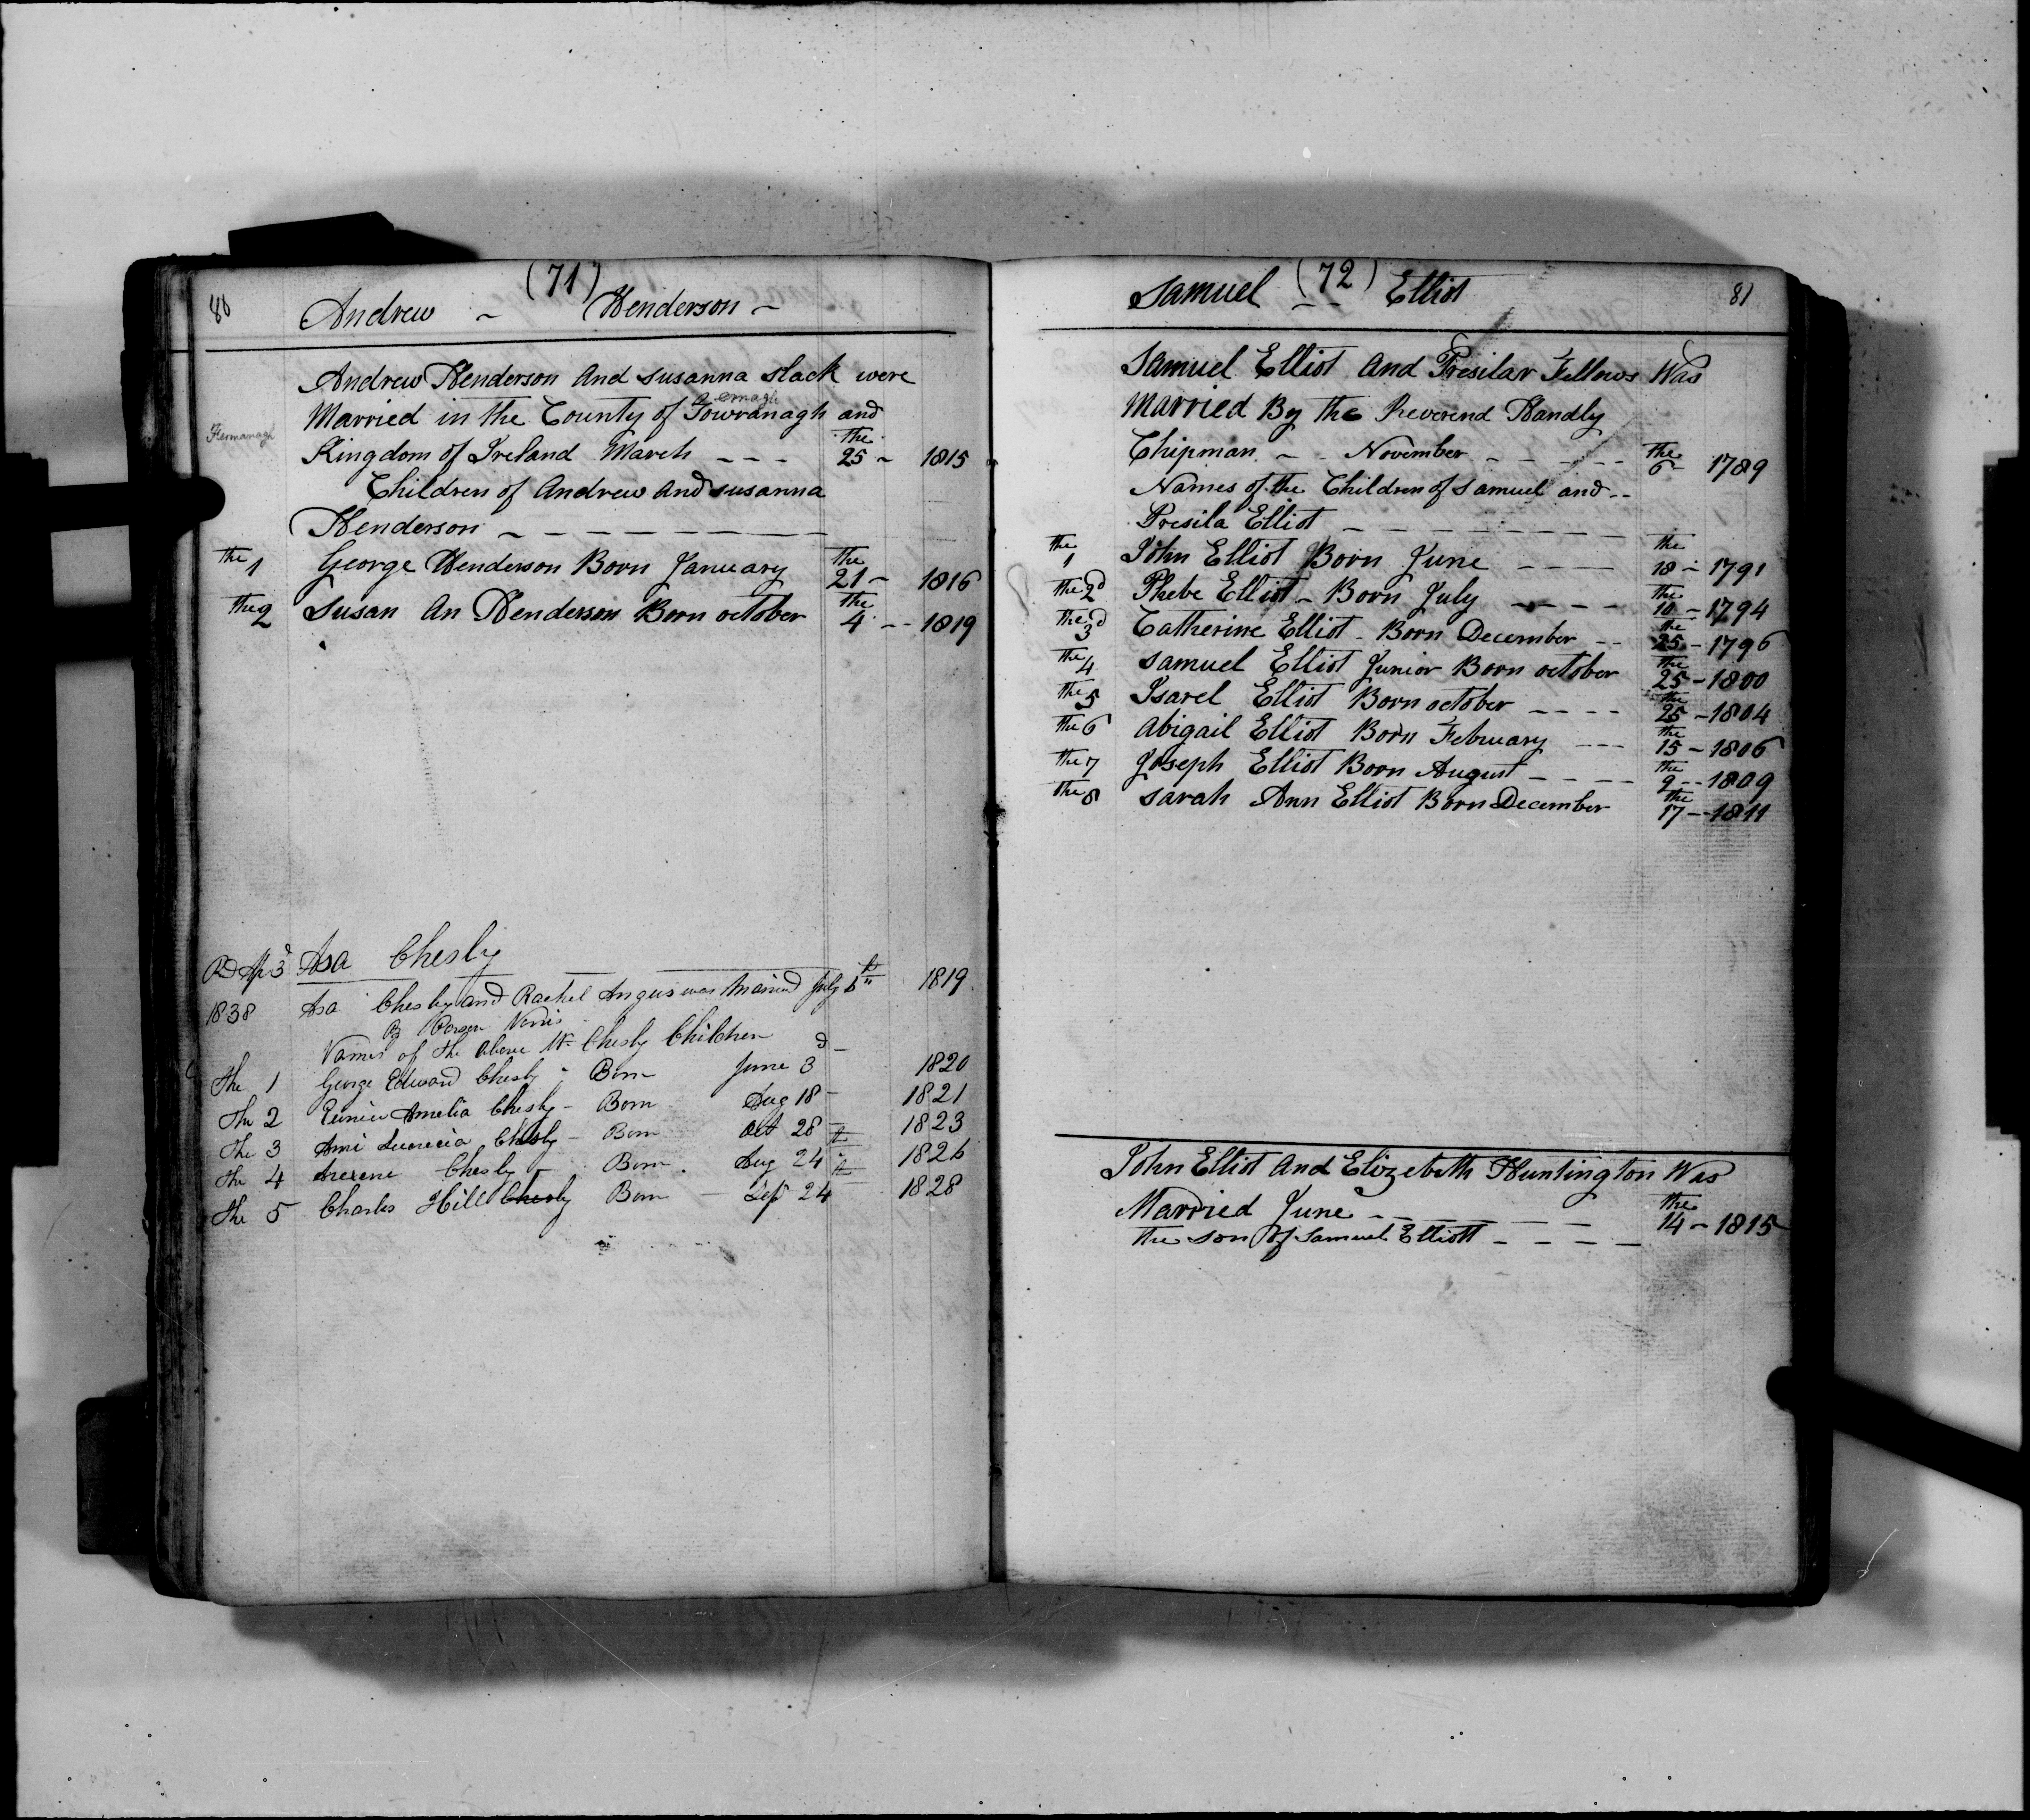 80 (71)
Andrew - Henderson -
Andrew Henderson And Susanna Slack were
Married in the County of and
Fermanagh
Kingdom of Ireland March - - - the 25 - 1815
Children of Andrew and Susanna
Henderson - - - - - - - -
the 1 George Henderson Born January the 21 - 1816
the 2 Susan An Henderson Born october the 4 - - 1819
Asa Chesly
1838 Asa Chesley and Rachel Angus was Married July 1819
By Parson Norris
Names of the above Chesly Children
The 1 George Edward Chesly - Born June 3d - 1820
The 2 Eunice Amelia Chesly - Born Aug 18 - 1821
The 3 Ami Chesly - Born Oct 28 th 1823
The 4 Chesly - Born Aug 24 th 1826
The 5 Charles Hill Chesly Born - Sep 24 1828
(72) 81
Samuel - - Elliot
Samuel Elliot And Presilar Fellows Was
Married By the Reverend Handly
Chipman - - November - - - - - the 6 - 1789
Names of the Children of Samuel and - -
Presila Elliot - - - - - - - -
the 1 John Elliot Born June - - - - the 18 - 1791
the 2d Phebe Elliot - Born July - - - - the 10 - 1794
the 3d Catherine Elliot - Born December - - the 25 - 1796
the 4 Samuel Elliot Junior Born october the 25 - 1800
the 5 Isarel Elliot Born october - - - - the 25 - 1804
the 6 Abigail Elliot Born February - - - the 15 - 1806
the 7 Joseph Elliot Born August - - - - the 9 - - 1809
the 8 Sarah Ann Elliot Born December the 17 - - 1811
John Elliot And Elizebeth Huntington Was
Married June - - - - - - the 14 - 1815
the son of Samuel Elliott - - - -